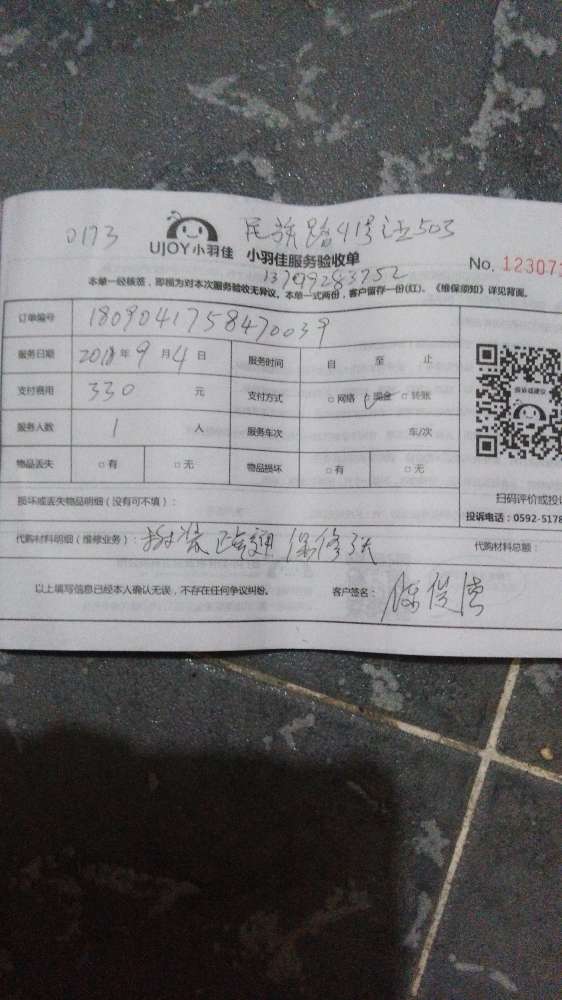 0173 民族路41号 503
UJOY小羽佳 小羽佳服务验收单 No. 123071
13799283752
本单一经核签，即视为对本次服务验收无异议。本单一式两份，客户留存一份(红)。《维保须知》详见背面。
订单编号 1809041758470039
服务日期 2018年 9 月 4 日 服务时间 自 至 止
支付费用 330 元 支付方式 □网络 □现金 □转账
服务人数 1 人 服务车次 车/次
物品丢失 □有 □无 物品损坏 □有 □无
投诉或建议
损坏或丢失物品明细（没有可不填）：
扫码评价或投
投诉电话：0592-5178
代购材料明细（维修业务）： 疏通 保修 天 代购材料总额：
以上填写信息已经本人确认无误，不存在任何争议纠纷。 客户签名：